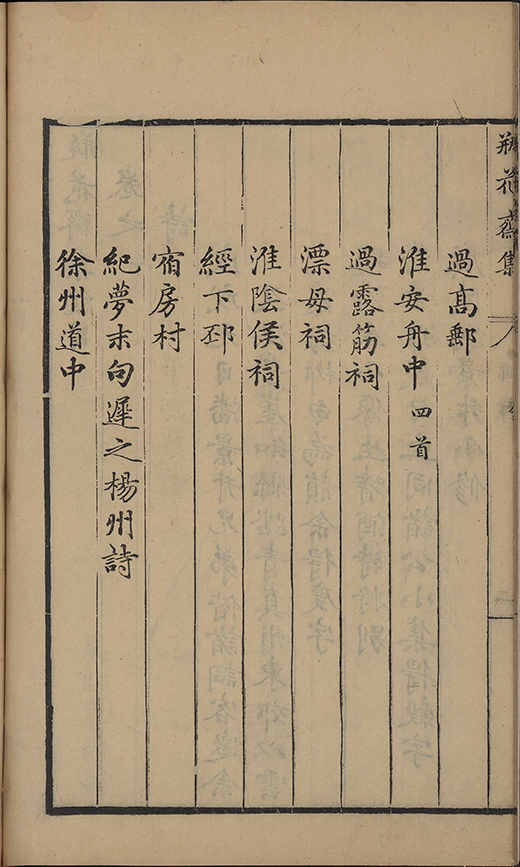 瓶花齋集
過高郵
淮安舟中 四首
過露筋祠
漂母祠
淮陰侯祠
經下邳
宿房村
紀夢末句遲之楊州詩
徐州道中